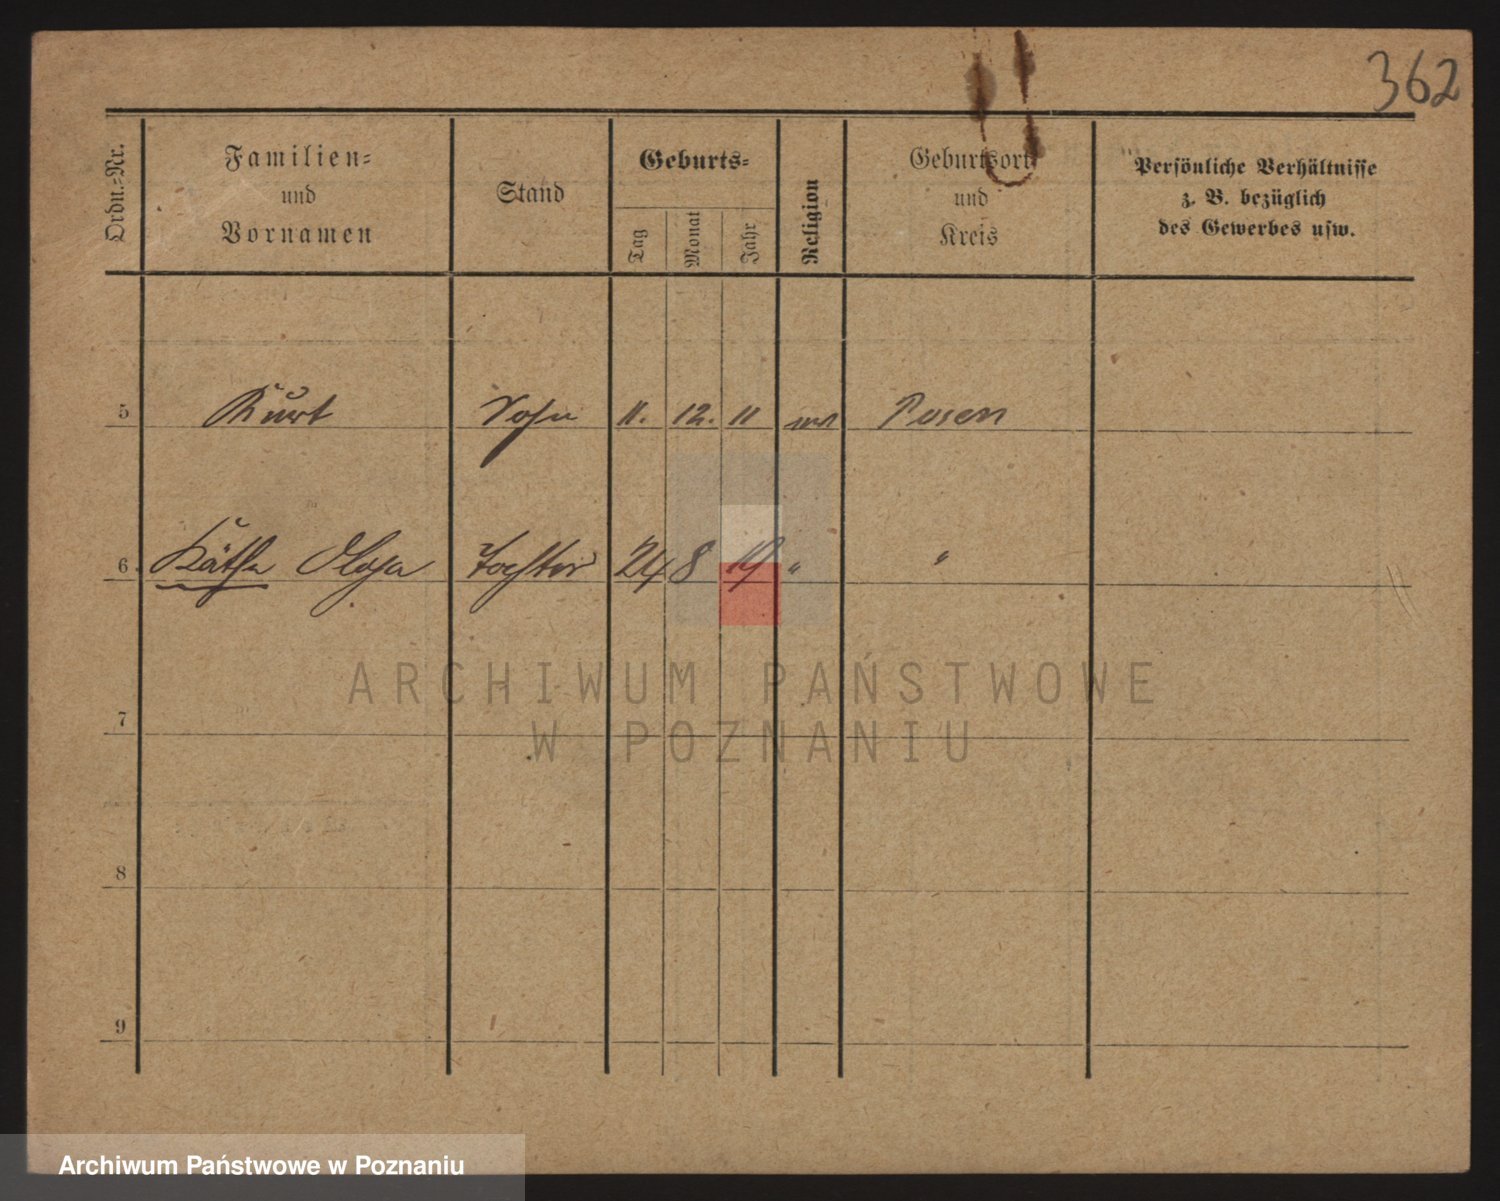 362
Ordn.-Nr.
Familien-
und
Vornamen
Stand
Geburts-
Tag
Monat
Jahr
Religion
Geburtsort
und
Kreis
Persönliche Verhältnisse
z. B. bezüglich
des Gewerbes usw.
5 Kurt Sohn 11. 12. 11 Posen
6. Käthe Olga Tochter 24 8 19 " "
ARCHIWUM PAŃSTWOWE
W POZNANIU
7
8
9
Archiwum Państwowe w Poznaniu